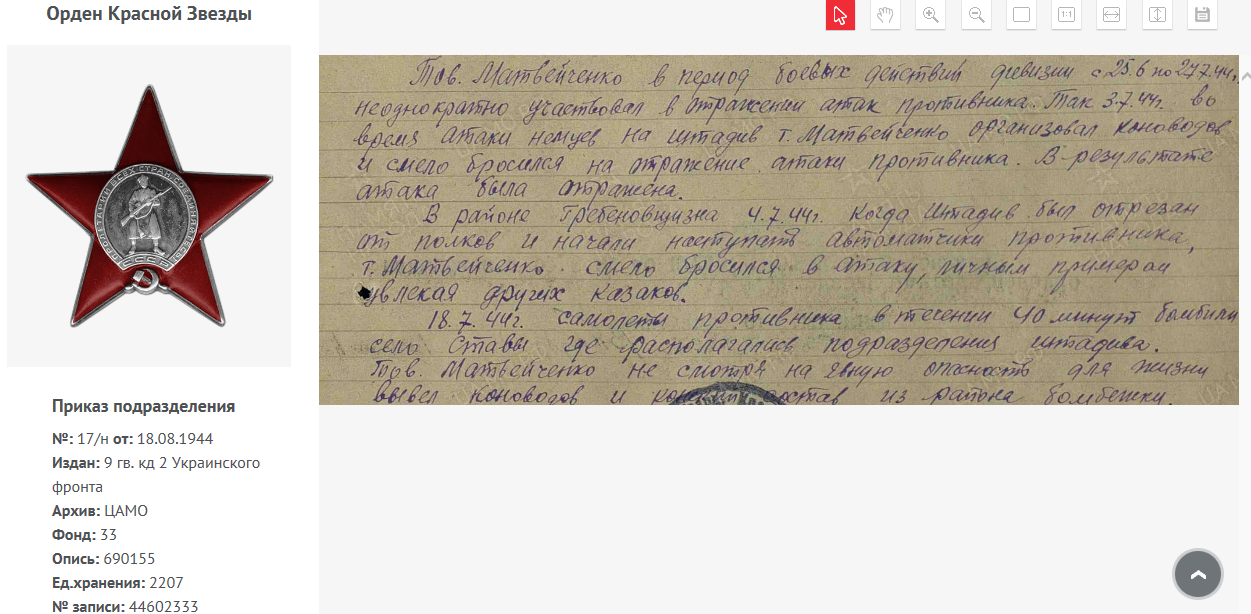 Орден Красной Звезды
1:1
ПРОЛЕТАРИИ ВСЕХ СТРАН СОЕДИНЯЙТЕСЬ
СССР
Приказ подразделения
№: 17/н от: 18.08.1944
Издан: 9 гв. кд 2 Украинского
фронта
Архив: ЦАМО
Фонд: 33
Опись: 690155
Ед.хранения: 2207
№ записи: 44602333
Тов. Матвейченко в период боевых действий дивизии с 25.6 по 27.7.44г.
неоднократно участвовал в отражении атак противника. Так 3.7.44г. во
время атаки немцев на штадив т. Матвейченко организовал коноводов
и смело бросился на отражение атаки противника. В результате
атака была отражена.
В районе Гребеновщизна 4.7.44г. когда штадив был отрезан
от полков и начали наступать автоматчики противника,
т. Матвейченко смело бросился в атаку, личным примером
увлекая других казаков.
18.7.44г. самолеты противника в течении 40 минут бомбили
село Ставы где располагались подразделения штадива.
Тов. Матвейченко не смотря на явную опасность для жизни
вывел коноводов и конский состав из района бомбежки.